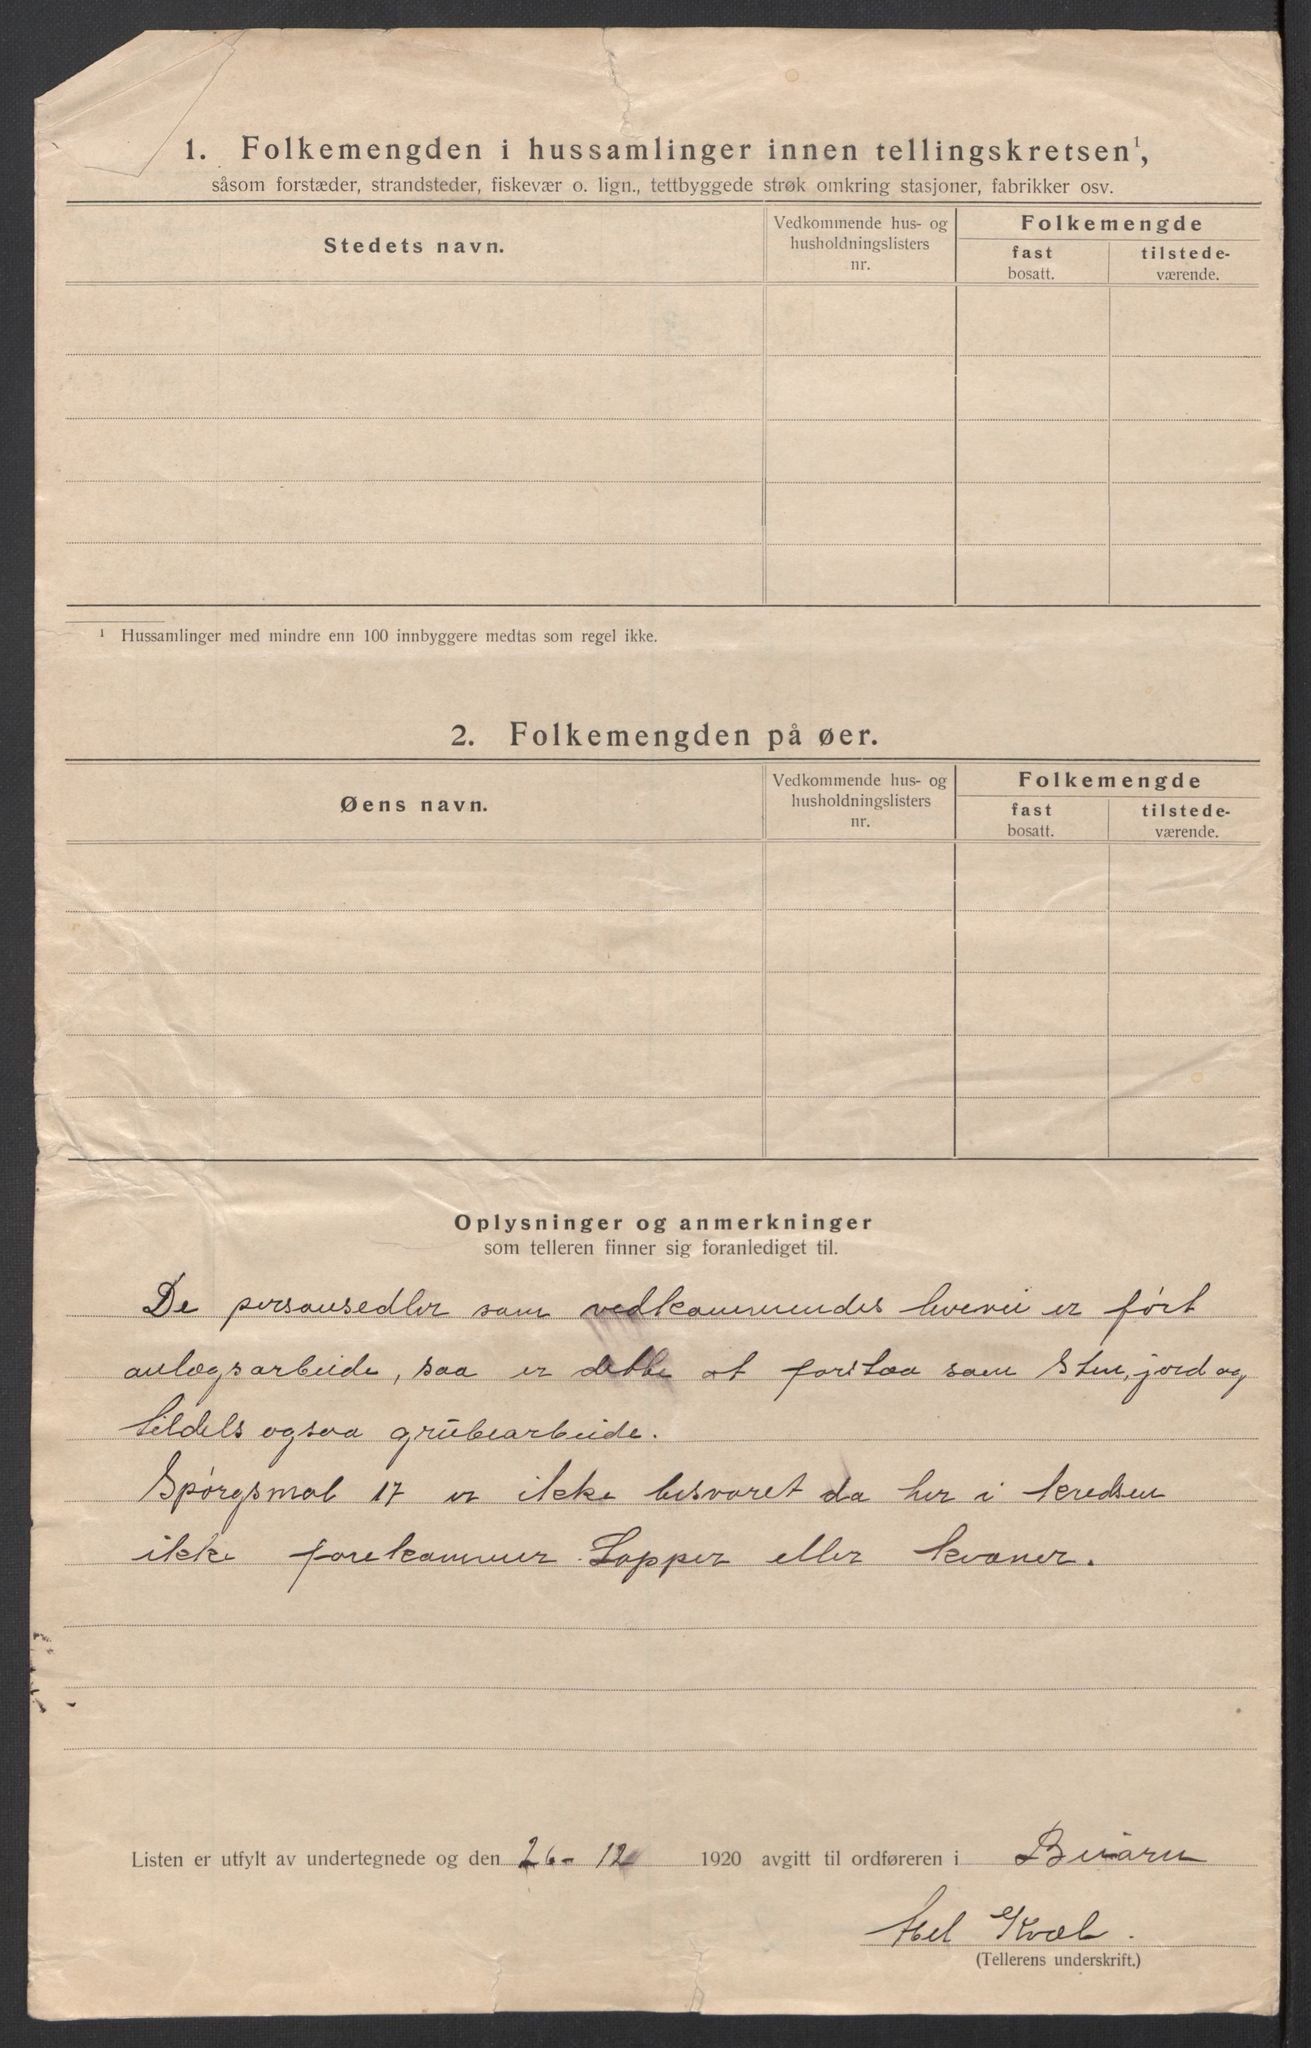 1. Folkemengden i hussamlinger innen tellingskretsen¹,
såsom forstæder, strandsteder, fiskevær o. lign., tettbyggede strøk omkring stasjoner, fabrikker osv.
Stedets navn.
Vedkommende hus- og
husholdningslisters
nr.
Folkemengde
fast
bosatt.
tilstede-
værende.
¹ Hussamlinger med mindre enn 100 innbyggere medtas som regel ikke.
2. Folkemengden på øer.
Øens navn.
Vedkommende hus- og
husholdningslisters
nr.
Folkemengde
fast
bosatt.
tilstede-
værende.
Oplysninger og anmerkninger
som telleren finner sig foranlediget til.
De personsedler som vedkommendes levevei er ført
anlægsarbeide, saa er dette at forstaa som Sten, jord og
tildels ogsaa grubearbeide.
Spørgsmål 17 er ikke besvaret da her i kredsen
ikke forekommer Lapper eller kvæner.
Listen er utfylt av undertegnede og den 26-12 1920 avgitt til ordføreren i Beiarn
Kvæl.
(Tellerens underskrift.)